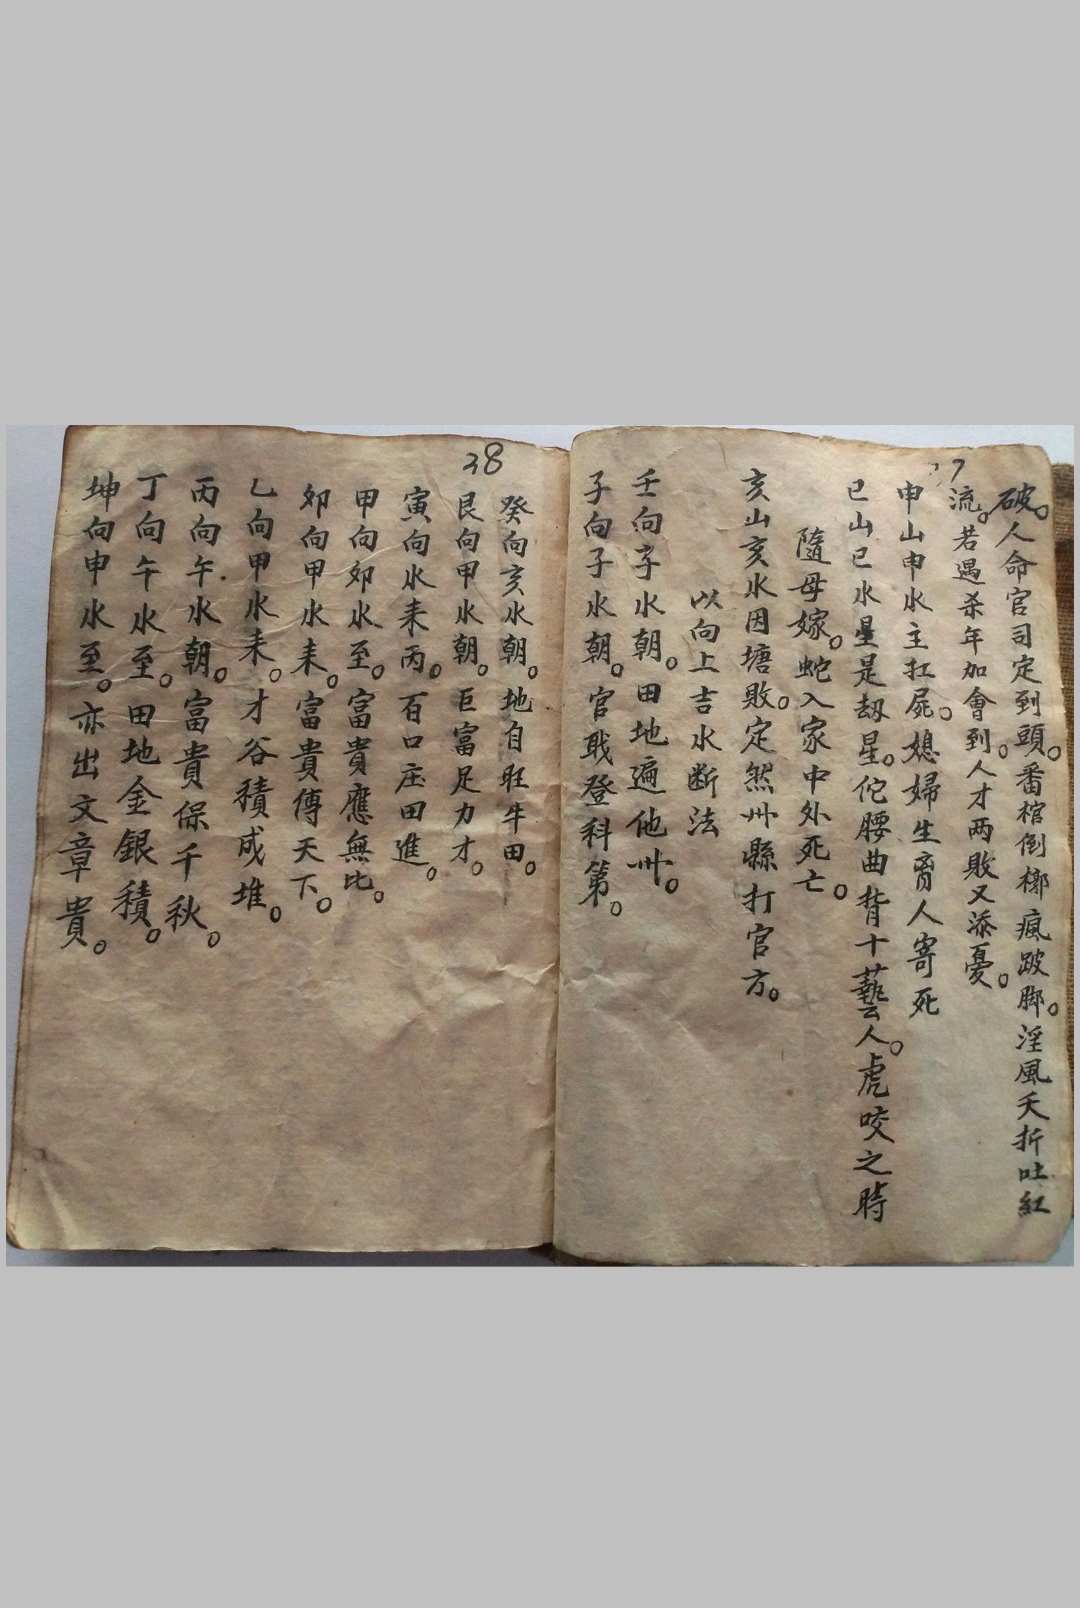 破。人命官司定到頭。番棺倒槨瘋跛脚。淫風夭折吐紅
流。若遇杀年加會到。人才两敗又添憂。
申山申水主扛屍。媳婦生育人寄死
巳山巳水星是劫星。佗腰曲背十藝人。虎咬之時
隨母嫁。蛇入家中外死亡。
亥山亥水因塘敗。定然州縣打官方。
以向上吉水断法
壬向子水朝。田地遍他州。
子向子水朝。官戝登科第。
38
癸向亥水朝。地自旺牛田。
艮向甲水朝。巨富足力才。
寅向水耒丙。百口庄田進。
甲向卯水至。富貴應無比。
卯向甲水耒。富貴傳天下。
乙向甲水耒。才谷積成堆。
丙向午水朝。富貴保千秋。
丁向午水至。田地金銀積。
坤向申水至。亦出文章貴。